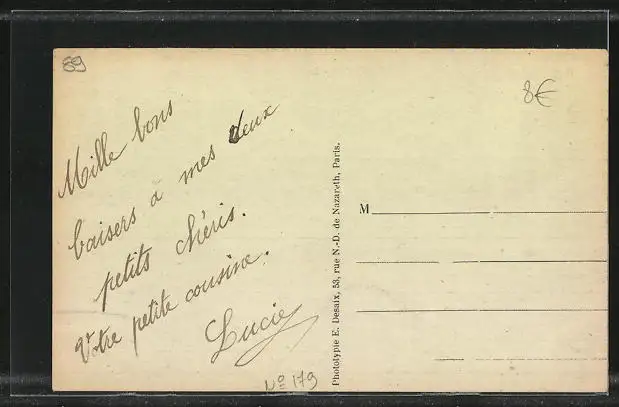 89
8€
Mille bons
baisers à mes deux
petits chéris.
Votre petite cousine.
Lucie
Nº 179
Phototypie E. Desaix, 53, rue N.-D. de Nazareth, Paris.
M